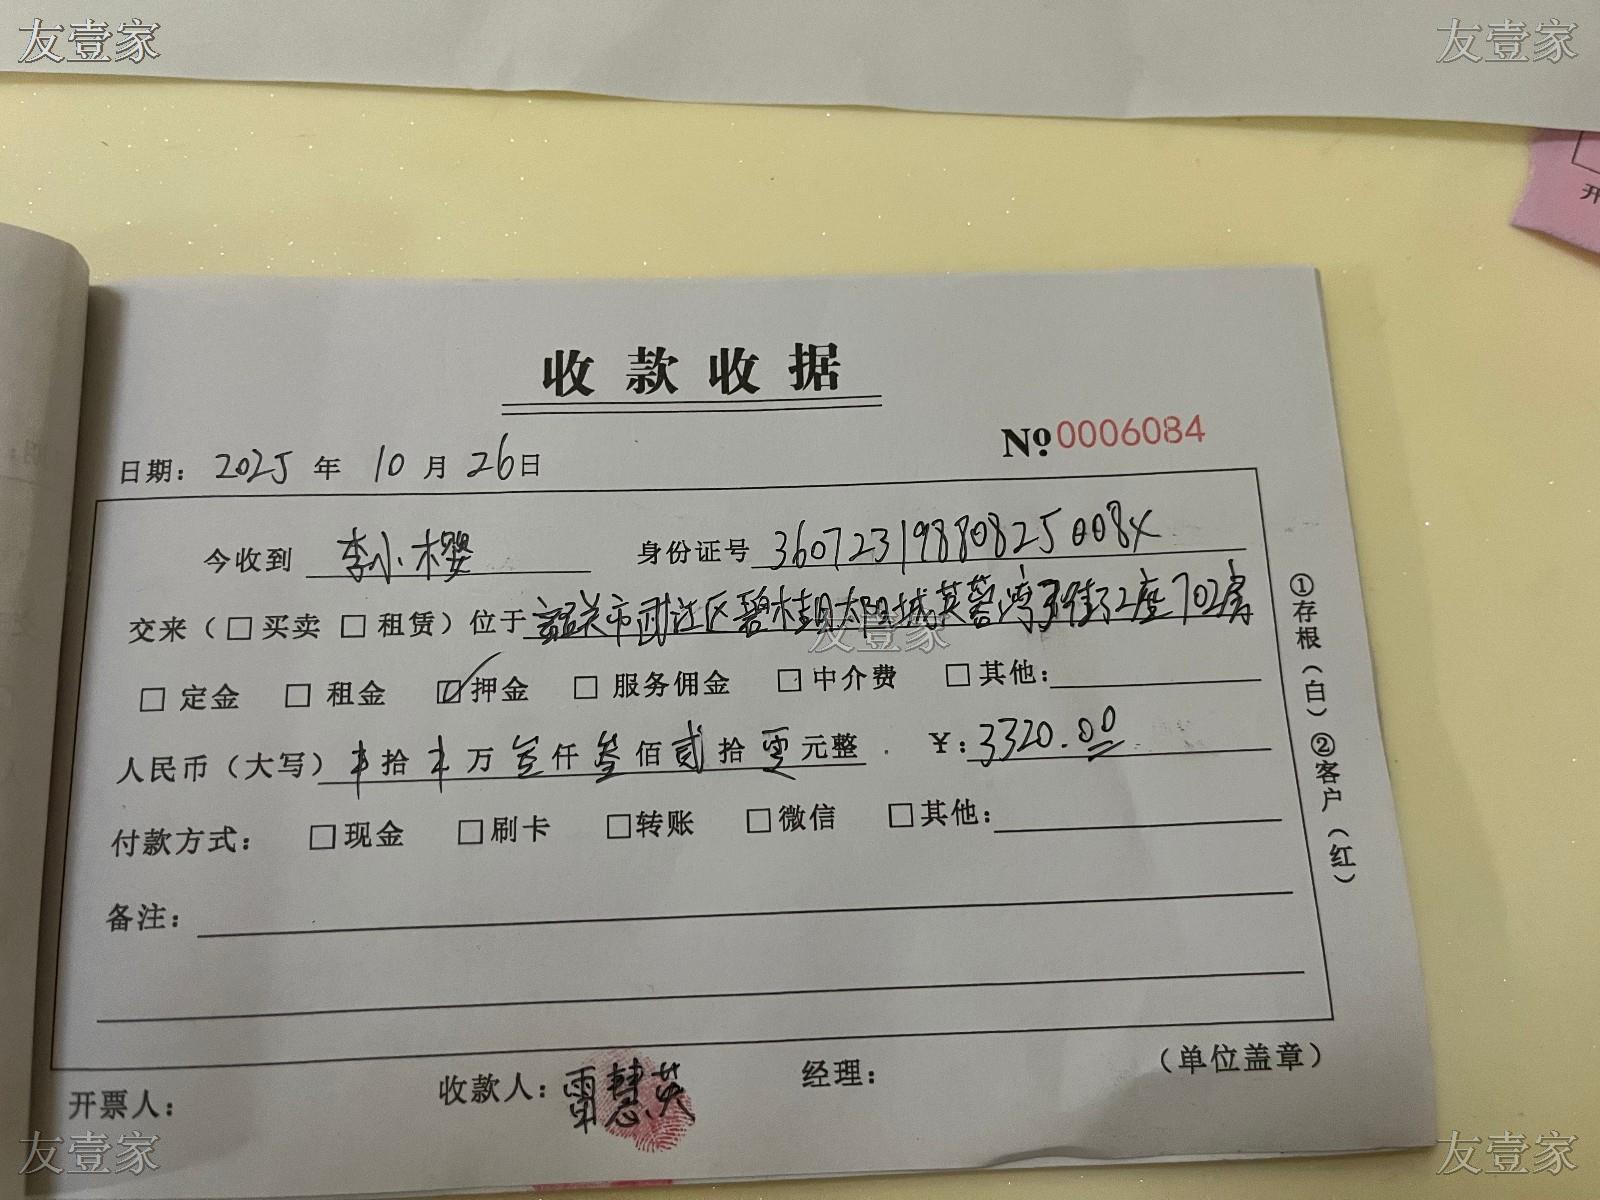 友壹家 友壹家
开
收款收据
№ 0006084
日期: 2025 年 10 月 26日
今收到 李小樱 身份证号 36072319880825008X
交来(□买卖 □租赁)位于 韶关市武江区碧桂园太阳城芙蓉湾 街12座702房
友壹家
□ 定金 □ 租金 ☑押金 □ 服务佣金 □中介费 □其他:
人民币(大写) 拾 万 叁仟 叁佰 贰拾 零元整. ¥:3320.00
付款方式: □现金 □刷卡 □转账 □微信 □其他:
备注:
①存根(白)②客户(红)
开票人: 收款人:雷慧英 经理: (单位盖章)
友壹家 友壹家